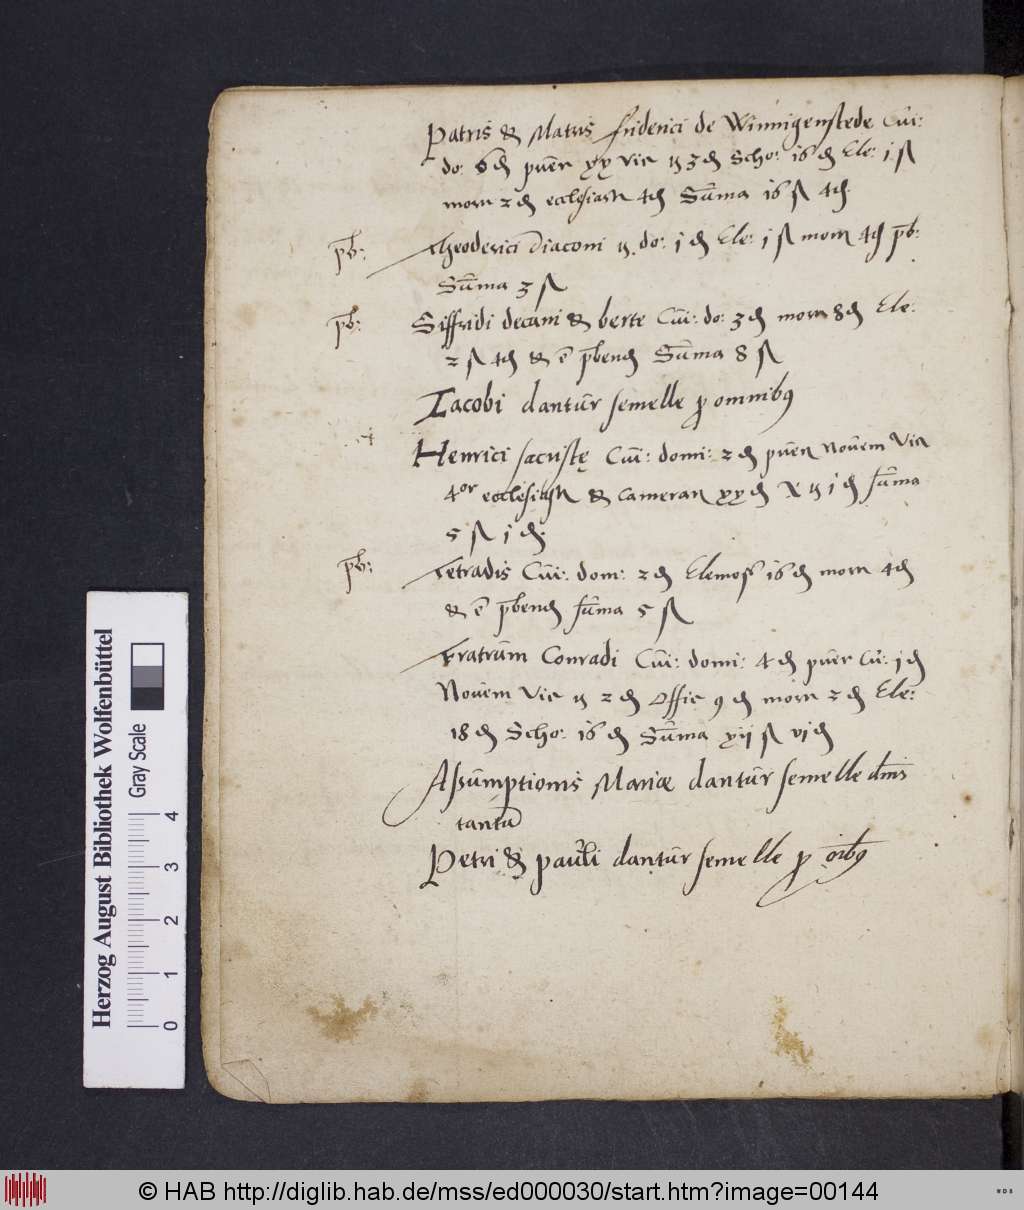 Patris & Matris Friderici de Winnigenstede Cui:
do: 6 ₰ puer xx vic 13 ₰ Scho: 16 ₰ Ele: 1 ß
morn 2 ₰ ecclesiasn 4 ₰ Sūma 16 ß 4 ₰.
pb: Theoderici Diaconi do: 1 ₰ Ele: 1 ß morn 4 ₰ pb:
Sūma 3 ß
pb: Siffridi decani & berte Cui: do: 3 ₰ morn 8 ₰ Ele:
2 ß 4 ₰ & ē pbend Sūma 8 ß
Iacobi dantur semelle p omnibus
Henrici sacristę Cui: domi: 2 ₰ puen Nouem Vic
4or ecclesiasn & Cameran xx ₰ 1 ₰ sūma
5 ß 1 ₰.
pb: Tetradis Cui: dom: 2 ₰ Elemos 16 ₰ morn 4 ₰
& ē pbend sūma 5 ß
Fratrum Conradi Cui: domi: 4 ₰ puer Cu: 1 ₰
Nouem Vic 2 ₰ Offic 9 ₰ morn 2 ₰ Ele:
18 ₰ Scho: 16 ₰ Sūma xij ß vj ₰
Assumptionis Mariæ dantur semelle dnis
tantū
Petri & pauli dantur semelle p oibus
Herzog August Bibliothek Wolfenbüttel
Gray Scale
0 1 2 3 4
© HAB http://diglib.hab.de/mss/ed000030/start.htm?image=00144